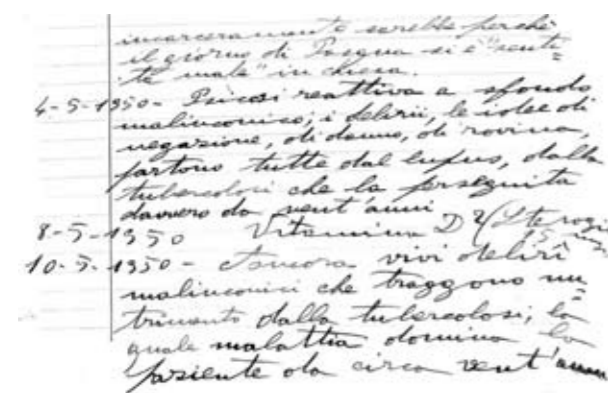 incarceramento sarebbe perchè
il giorno di Pasqua si è "senti=
ta male" in chiesa.
4-5-1950- Psicosi reattiva a sfondo
malinconico; i delirii, le idee di
negazione, di danno, di rovina,
partono tutte dal lupus, dalla
tubercolosi che la perseguita
davvero da vent'anni
8-5-1950 Vitamina D2 (Sterogil
15
10-5-1950- Ancora vivi delirî
malinconici che traggono nu=
trimento dalla tubercolosi; la
quale malattia domina la
paziente da circa vent'anni